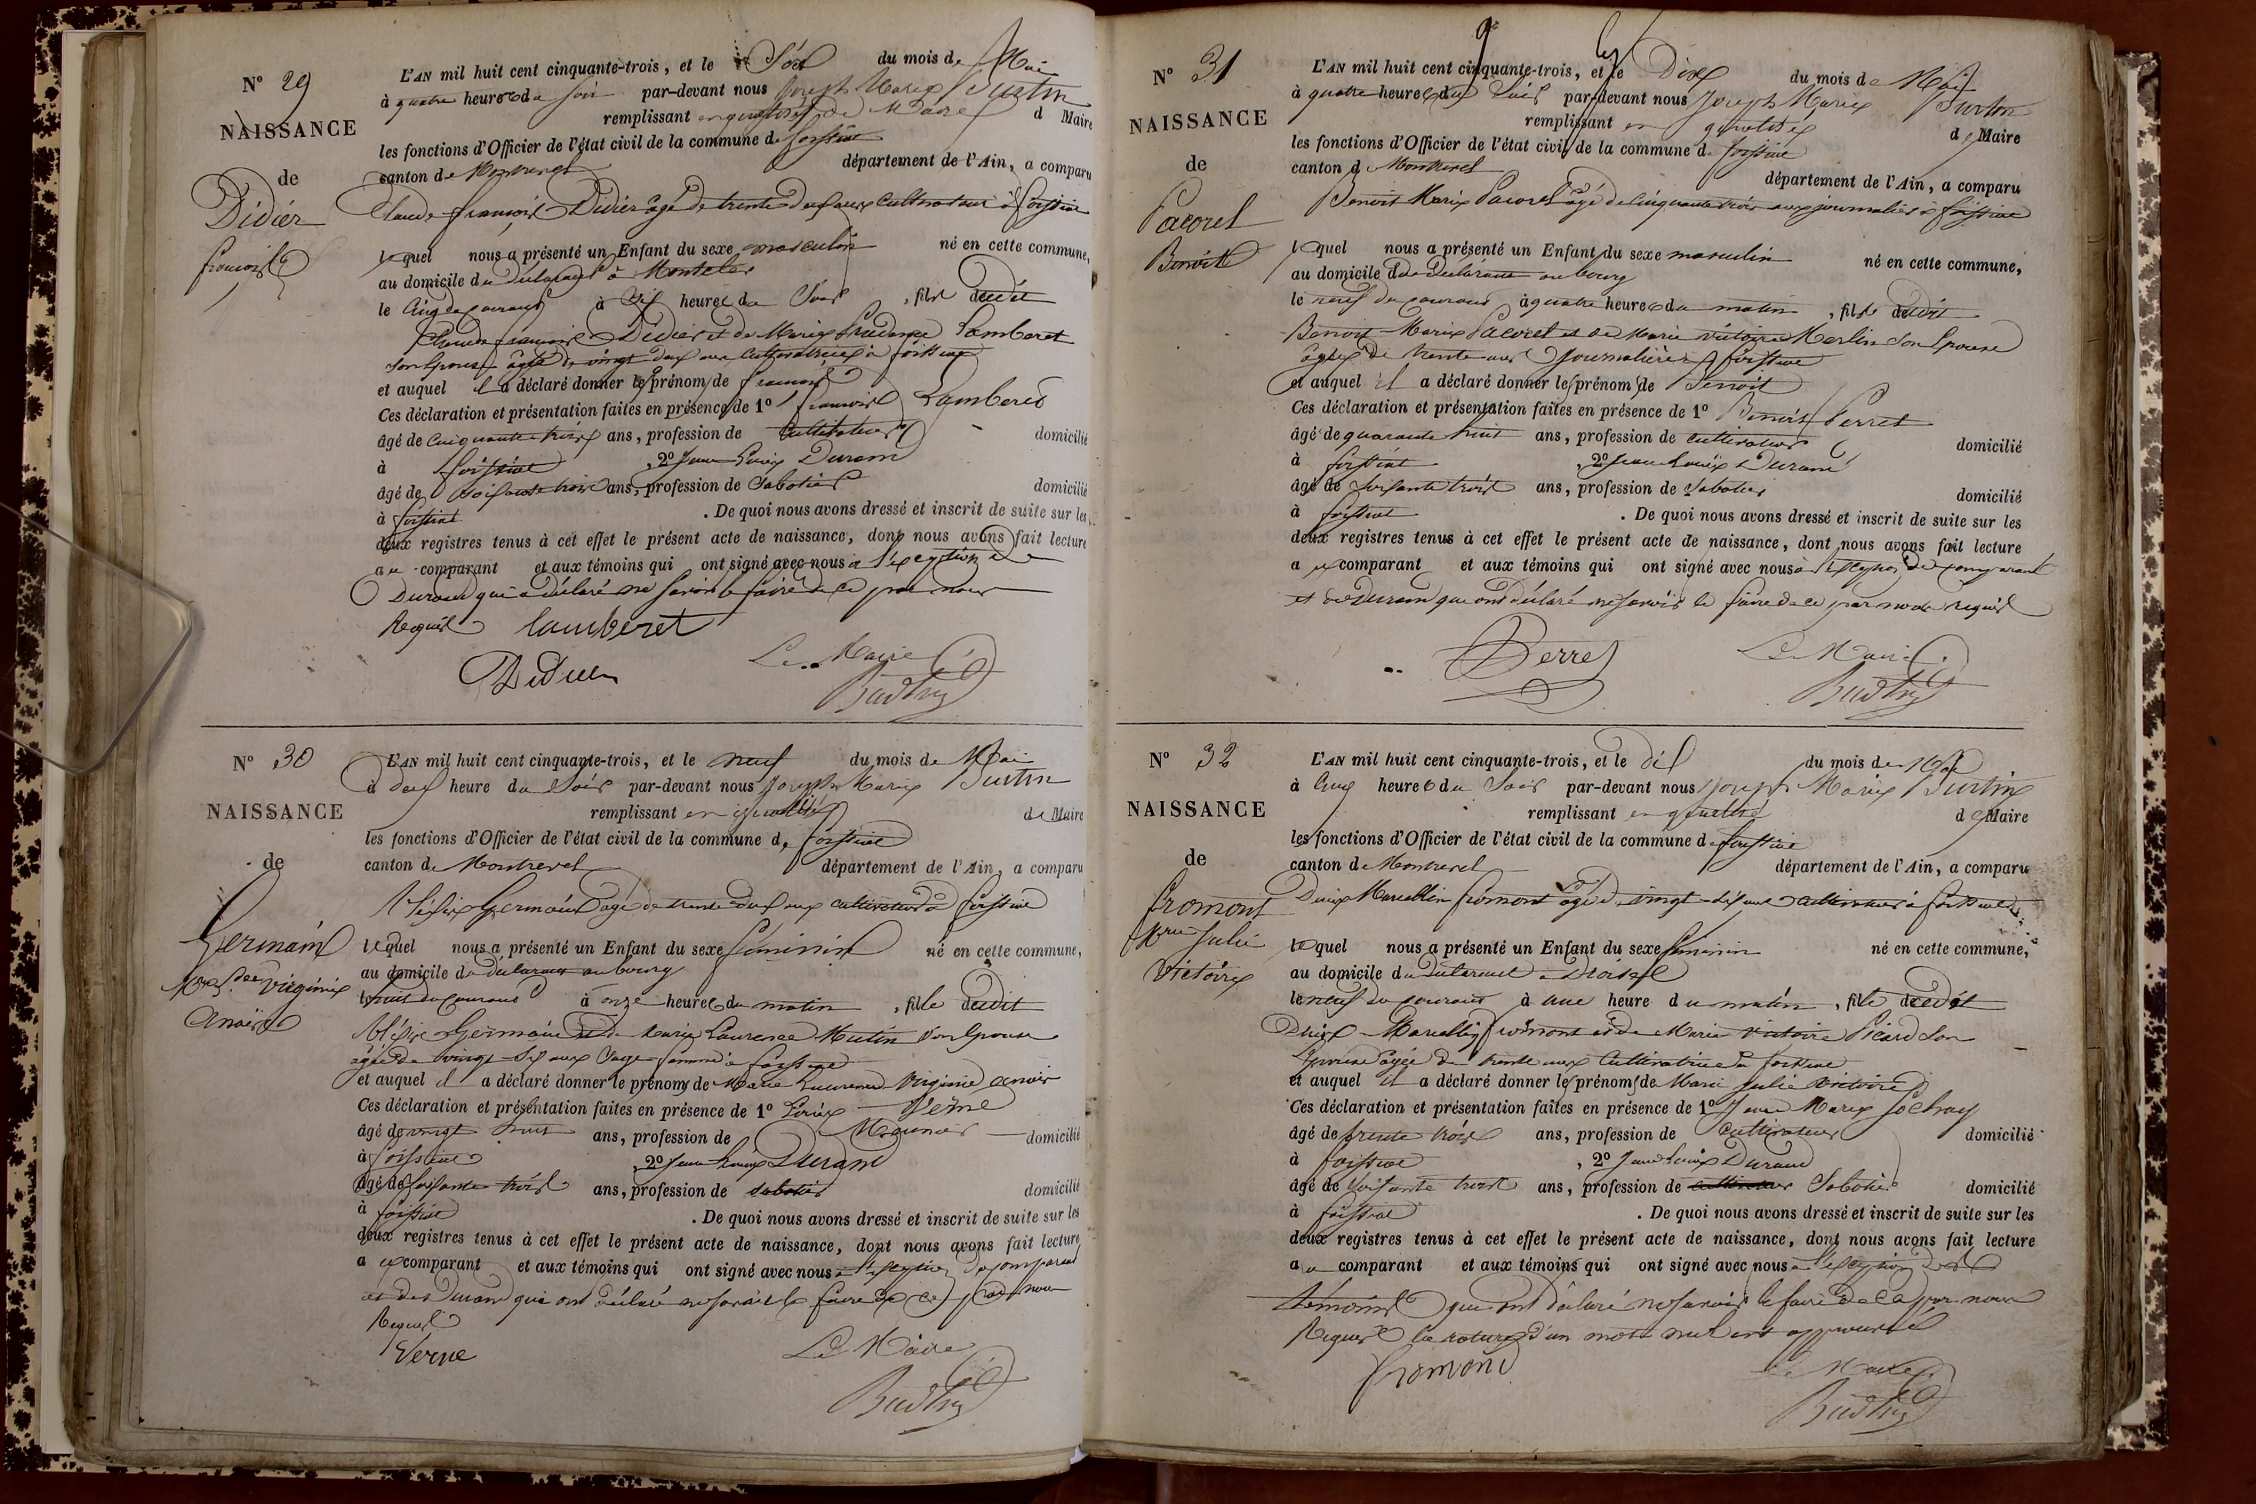 N° 29
NAISSANCE
de
Didier
françois
L'AN mil huit cent cinquante-trois, et le Six du mois de Mai
à quatre heures du soir par-devant nous Joseph Marie Burtin
remplissant en qualité de Maire d Maire
les fonctions d'Officier de l'état civil de la commune de foissiat
canton de Montrevel département de l'Ain, a comparu
Claude françois Didier agé de trente deux ans Cultivateur à foissiat
lequel nous a présenté un Enfant du sexe masculin né en cette commune,
au domicile du déclarant à
le Cinq du courant à Six heures du Soir, fils dudit
Claude françois Didier et de Marie Lamberet
son épouse agée de vingt deux ans Cultivatrice à foissiat
et auquel il a déclaré donner le prénom de françois
Ces déclaration et présentation faites en présence de 1° françois Lamberet
âgé de Cinquante trois ans, profession de Cultivateur domicilié
à foissiat, 2° Jean Louis Durand
âgé de soixante trois ans, profession de Sabotier domicilié
à foissiat. De quoi nous avons dressé et inscrit de suite sur les
deux registres tenus à cet effet le présent acte de naissance, dont nous avons fait lecture
au comparant et aux témoins qui ont signé avec nous à l'exception de
Durand qui a déclaré ne savoir le faire de ce par nous
Requis lamberet
Didier
Le Maire
Burtin
N° 30
NAISSANCE
de
Germain
Virginie
Anaïs
L'AN mil huit cent cinquante-trois, et le neuf du mois de Mai
à deux heure du Soir par-devant nous Joseph Marie Burtin
remplissant en qualité de Maire
les fonctions d'Officier de l'état civil de la commune de foissiat
canton de Montrevel département de l'Ain, a comparu
Germain agé de trente deux ans cultivateur à foissiat
lequel nous a présenté un Enfant du sexe féminin né en cette commune,
au domicile du déclarant au bourg
le huit du courant à onze heures du matin, fille dudit
Germain et de Marie Laurence Mutin son épouse
agée de vingt sept ans Sage femme à foissiat
et auquel il a déclaré donner le prénoms de Marie Laurence Virginie anaïs
Ces déclaration et présentation faites en présence de 1° Verne
âgé de vingt huit ans, profession de domicilié
à foissiat, 2° Jean Louis Durand
âgé de soixante trois ans, profession de sabotier domicilié
à foissiat. De quoi nous avons dressé et inscrit de suite sur les
deux registres tenus à cet effet le présent acte de naissance, dont nous avons fait lecture
au comparant et aux témoins qui ont signé avec nous à l'exception du comparant
et de Durand qui ont déclaré ne savoir le faire de ce par nous
Requis
Verne
Le Maire
Burtin
N° 31
NAISSANCE
de
Pacoret
Benoit
L'AN mil huit cent cinquante-trois, et le Dix du mois de Mai
à quatre heures du Soir par-devant nous Joseph Marie Burtin
remplissant en qualité de Maire
les fonctions d'Officier de l'état civil de la commune de foissiat
canton de Montrevel département de l'Ain, a comparu
Benoit Marie Pacoret agé de Cinquante trois ans journalier à foissiat
lequel nous a présenté un Enfant du sexe masculin né en cette commune,
au domicile du déclarant au bourg
le neuf du courant à quatre heures du matin, fils dudit
Benoit Marie Pacoret et de Marie victoire Merlin son Epouse
agée de trente ans journalière à foissiat
et auquel il a déclaré donner le prénom de Benoit
Ces déclaration et présentation faites en présence de 1° Benoit Perret
âgé de quarante huit ans, profession de cultivateur domicilié
à foissiat, 2° Jean Louis Durand
âgé de soixante trois ans, profession de sabotier domicilié
à foissiat. De quoi nous avons dressé et inscrit de suite sur les
deux registres tenus à cet effet le présent acte de naissance, dont nous avons fait lecture
au comparant et aux témoins qui ont signé avec nous à l'exception du comparant
et de Durand qui ont déclaré ne savoir le faire de ce par nous requis
Perret
Le Maire
Burtin
N° 32
NAISSANCE
de
fromont
Mie Julie
Victoire
L'AN mil huit cent cinquante-trois, et le dix du mois de Mai
à Cinq heures du Soir par-devant nous Joseph Marie Burtin
remplissant en qualité de Maire
les fonctions d'Officier de l'état civil de la commune de foissiat
canton de Montrevel département de l'Ain, a comparu
Denis Marcellin fromont agé de vingt sept ans cultivateur à foissiat
lequel nous a présenté un Enfant du sexe féminin né en cette commune,
au domicile du déclarant à
le neuf du courant à une heure du matin, fille dudit
Denis Marcellin fromont et de Marie victoire Picard son
Epouse agée de trente ans Cultivatrice à foissiat
et auquel il a déclaré donner les prénoms de Marie Julie victoire
Ces déclaration et présentation faites en présence de 1° Jean Marie Sochay
âgé de trente trois ans, profession de cultivateur domicilié
à foissiat, 2° Jean Louis Durand
âgé de soixante trois ans, profession de cultivateur Sabotier domicilié
à foissiat. De quoi nous avons dressé et inscrit de suite sur les
deux registres tenus à cet effet le présent acte de naissance, dont nous avons fait lecture
au comparant et aux témoins qui ont signé avec nous à l'exception des
témoins qui ont déclaré ne savoir le faire de ce par nous
Requis la rature d'un mot nul est approuvée
fromont
Le Maire
Burtin